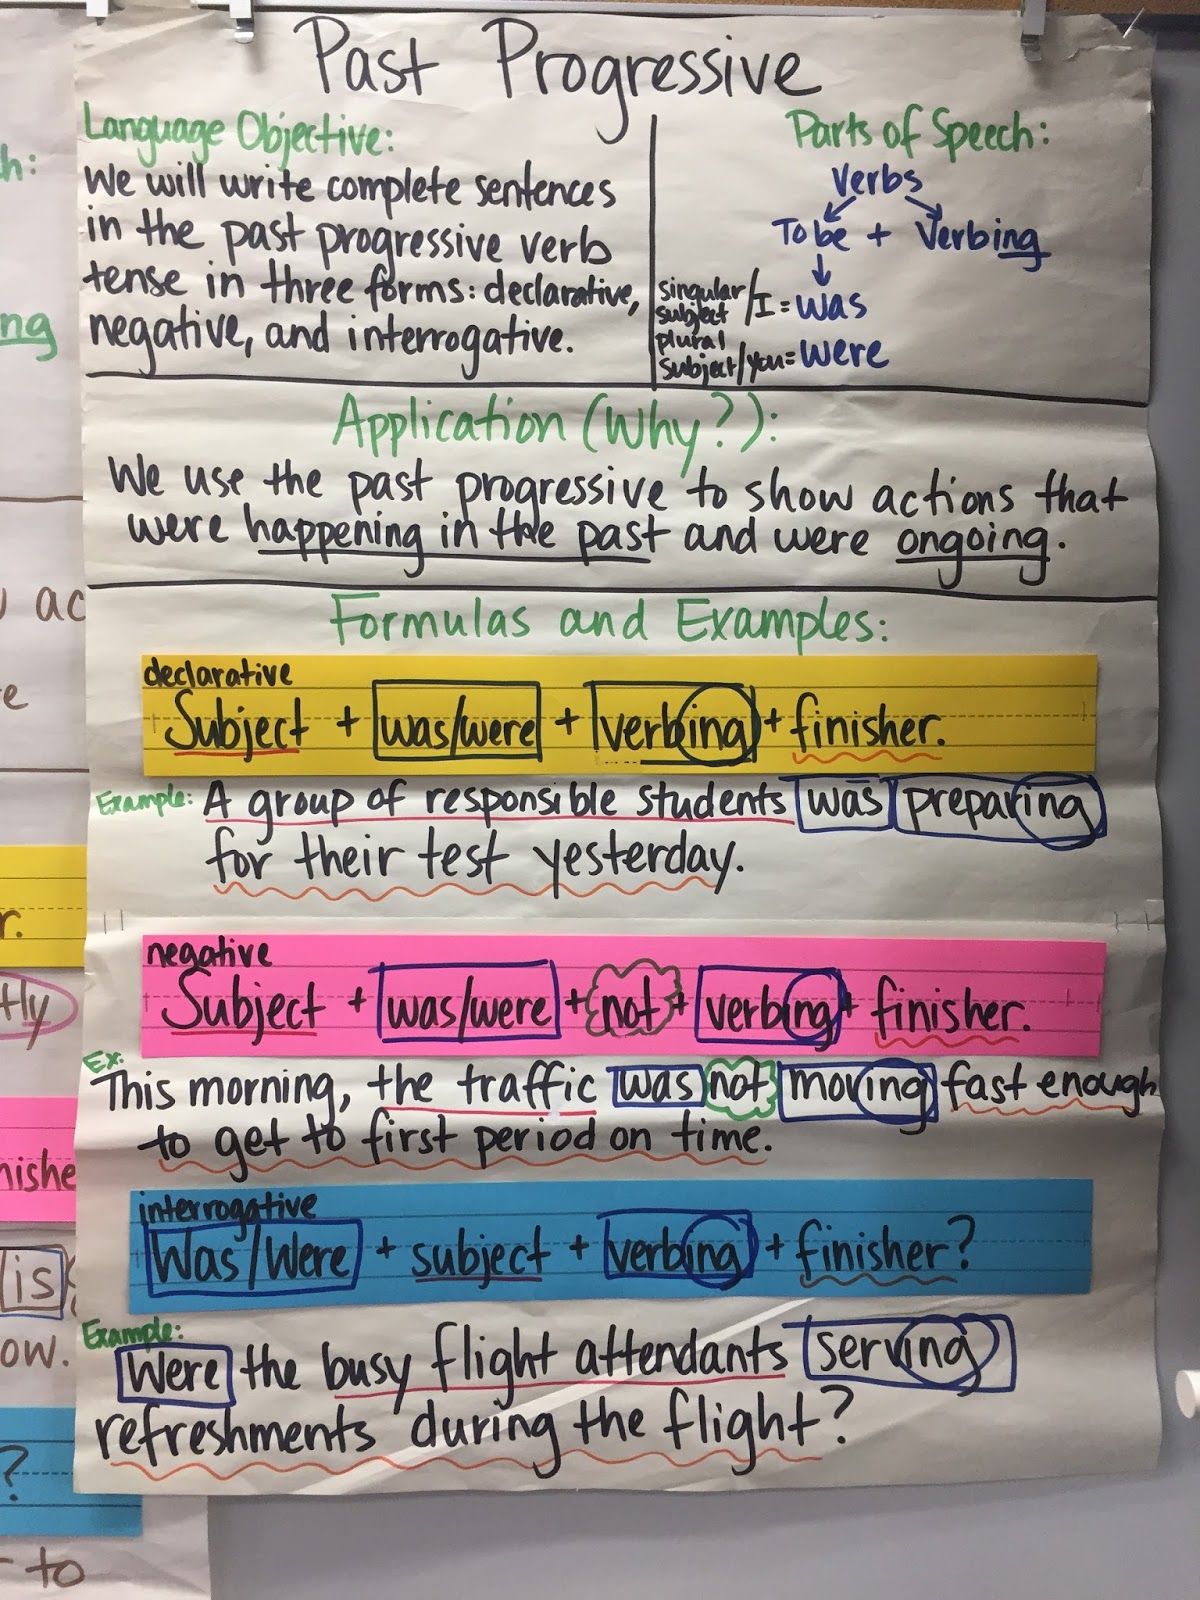 Past Progressive
Language Objective:
We will write complete sentences
in the past progressive verb
tense in three forms: declarative,
negative, and interrogative.
Parts of Speech:
Verbs
To be + Verbing
singular subject/I = was
plural subject/you = were
Application (Why?):
We use the past progressive to show actions that
were happening in the past and were ongoing.
Formulas and Examples:
declarative
Subject + was/were + verbing + finisher.
Example: A group of responsible students was preparing
for their test yesterday.
negative
Subject + was/were + not + verbing + finisher.
Ex.
This morning, the traffic was not moving fast enough
to get to first period on time.
interrogative
Was/Were + subject + verbing + finisher?
Example:
Were the busy flight attendants serving
refreshments during the flight?
h:
ng
ac
e
r.
tly
nishe
is
ow.
?
to